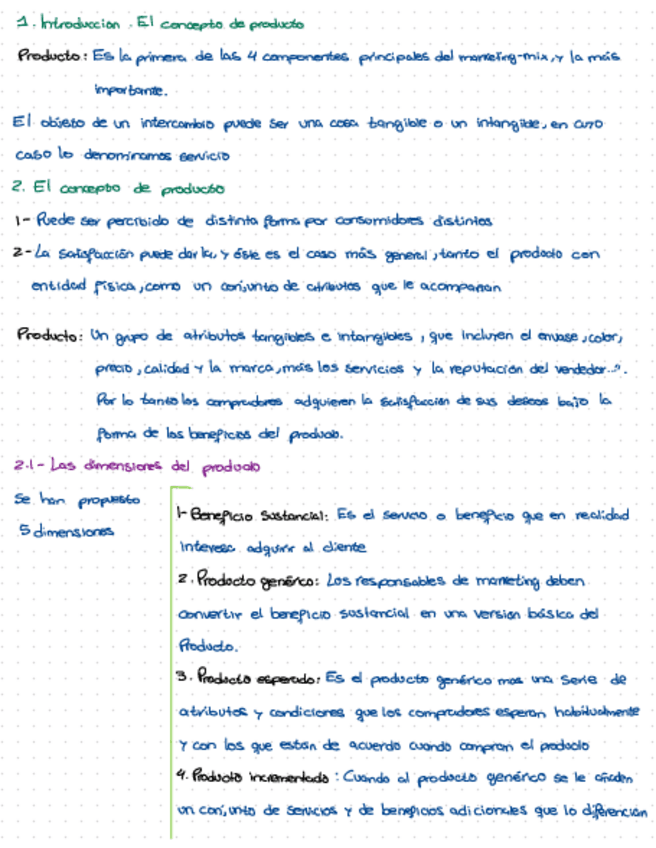 1. Introducción. El concepto de producto
Producto: Es la primera de las 4 componentes principales del marketing-mix, y la más
importante.
El objeto de un intercambio puede ser una cosa tangible o un intangible, en cuyo
caso lo denominamos servicio
2. El concepto de producto
1- Puede ser percibido de distinta forma por consumidores distintos
2- La satisfacción puede darla, y éste es el caso más general, tanto el producto con
entidad física, como un conjunto de atributos que le acompañan
Producto: Un grupo de atributos tangibles e intangibles, que incluyen el envase, color,
precio, calidad y la marca, más los servicios y la reputación del vendedor...".
Por lo tanto los compradores adquieren la satisfacción de sus deseos bajo la
forma de los beneficios del producto.
2.1- Las dimensiones del producto
Se han propuesto
5 dimensiones
1- Beneficio Sustancial: Es el servicio o beneficio que en realidad
interesa adquirir al cliente
2. Producto genérico: Los responsables de marketing deben
convertir el beneficio sustancial en una versión básica del
Producto.
3. Producto esperado: Es el producto genérico mas una serie de
atributos y condiciones que los compradores esperan habitualmente
y con los que están de acuerdo cuando compran el producto
4. Producto incrementado: Cuando al producto genérico se le añaden
un conjunto de servicios y de beneficios adicionales que lo diferencian